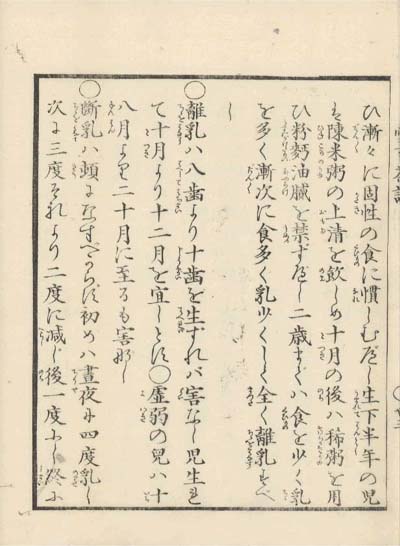 ひ漸々に固性の食に慣しむべし生下半年の児
は陳米粥の上清を飲しめ十月の後ハ稀粥を用
ひ粉麪油膩を禁ずべし二歳までハ食を少く乳
を多く漸次に食多く乳少くして全く離乳すべ
し
○離乳ハ八歯より十歯を生ずれバ害なし児生れ
て十月より十二月を宜しとす○虚弱の児ハ十
八月より二十月に至るも害なし
○断乳ハ頓になすべからず初めハ昼夜に四度乳し
次に三度それより二度に減じ後一度にし終に